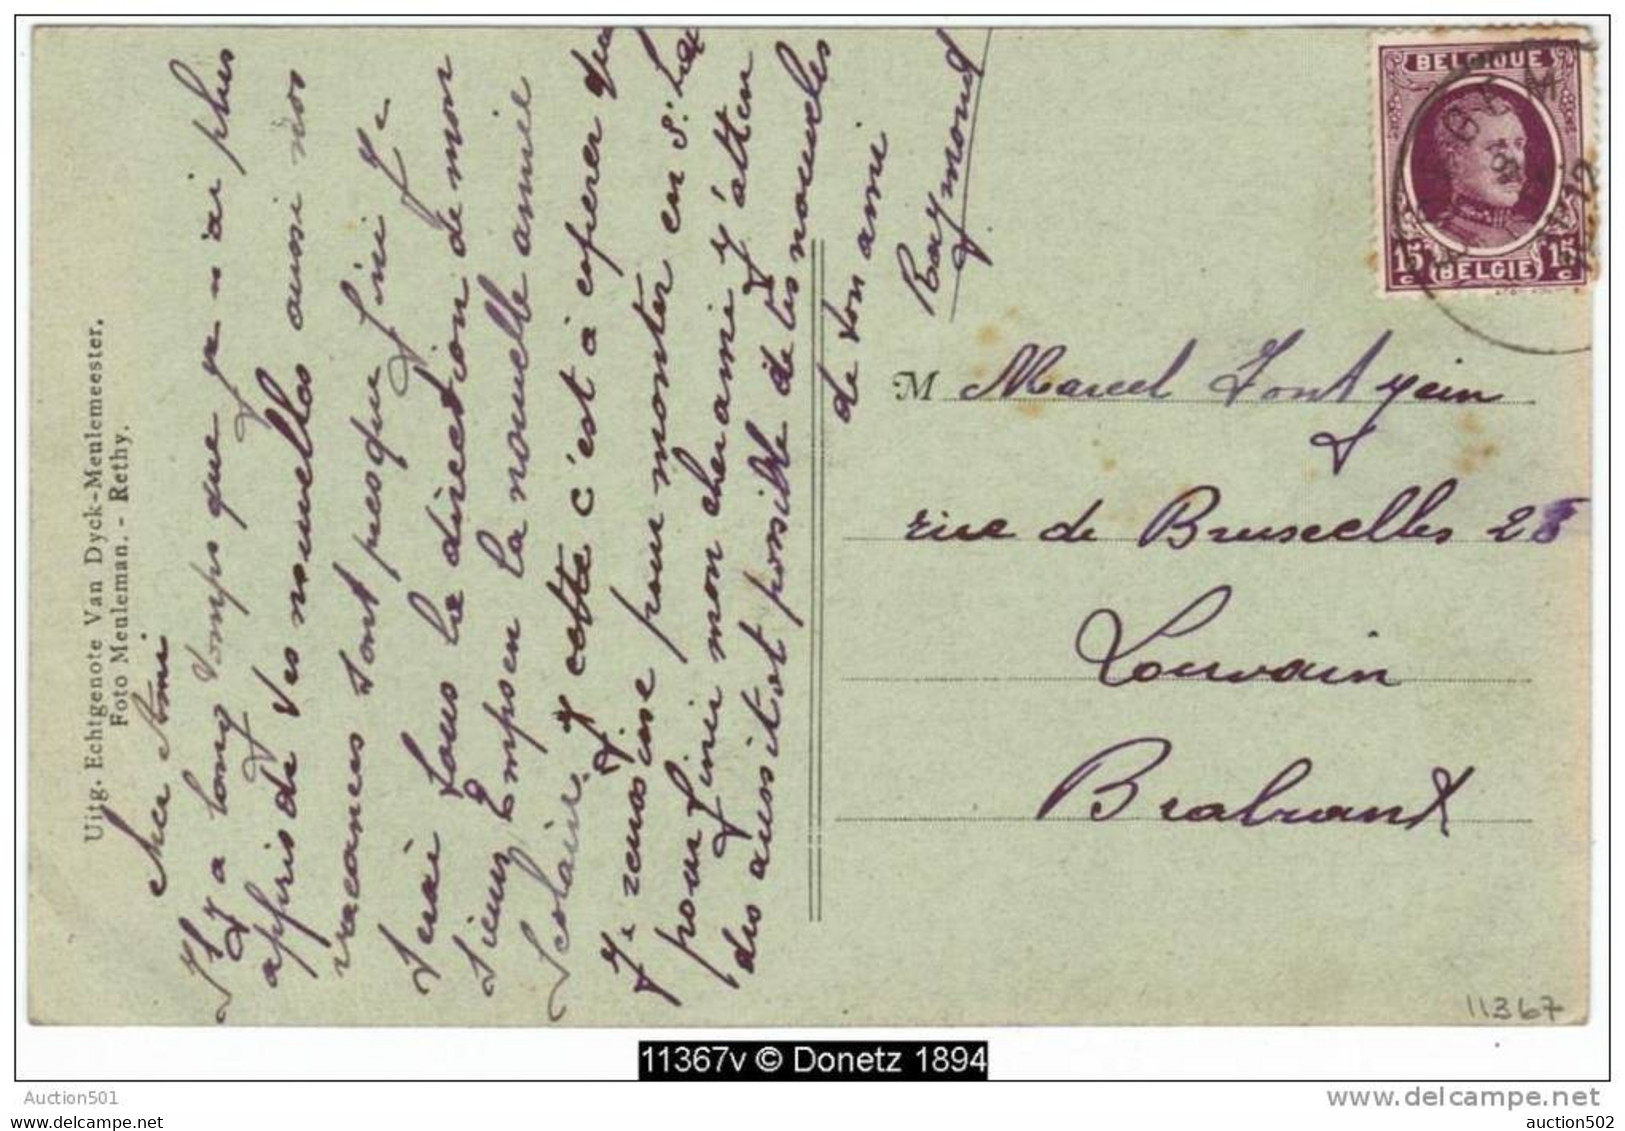 Uitg. Echtgenote Van Dyck-Meulemeester.
Foto Meuleman. - Rethy.
Cher Ami
Il y a long temps que je n'ai plus
appris de tes nouvelles aussi nos
vacances sont presque fini Je
serai sous la direction de mon
sieur Empsen la nouvelle année
Scolaire, et cette c'est à coperer que
Je reussisse pour monter en
pour finir mon cher ami j'atten
des aussitot possible de tes nouvelles
de ton ami
Raymond
BELGIQUE
15 c 15 c
BELGIE
M Marcel Fonteyein
rue de Bruxelles 28
Louvain
Brabant
11367
11367v © Donetz 1894
Auction501
www.delcampe.net
auction502